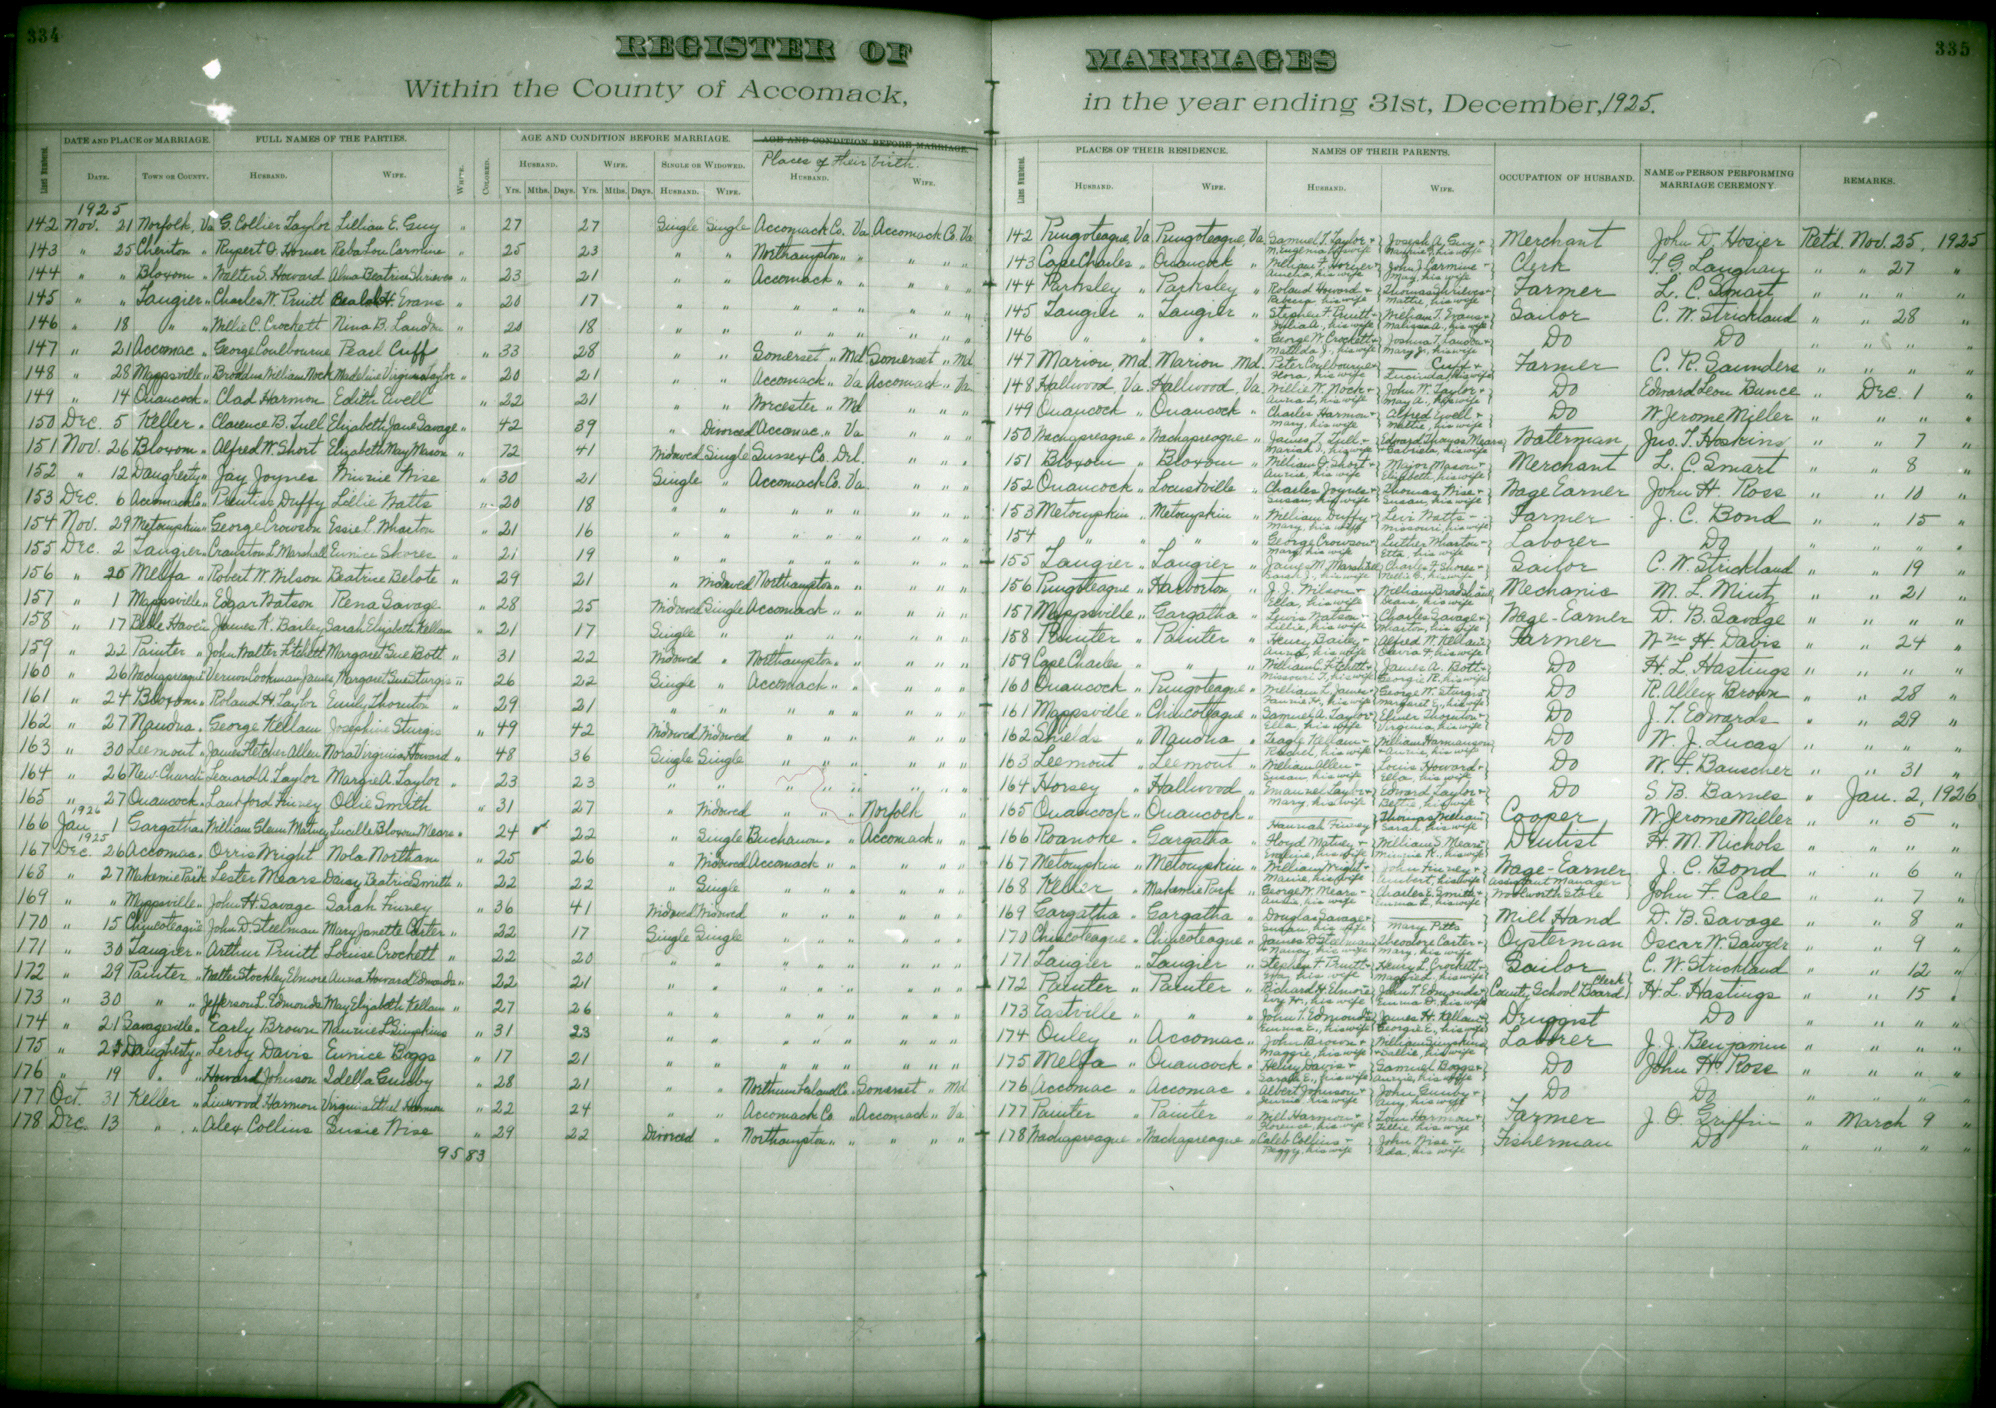 334
REGISTER OF MARRIAGES
335
Within the County of Accomack, in the year ending 31st, December, 1925.
Lines Numbered. DATE AND PLACE OF MARRIAGE. FULL NAMES OF THE PARTIES. WHITE. COLORED. AGE AND CONDITION BEFORE MARRIAGE. AGE AND CONDITION BEFORE MARRIAGE.
Places of their birth.
DATE. TOWN OR COUNTY. HUSBAND. WIFE. HUSBAND. WIFE. SINGLE OR WIDOWED. HUSBAND. WIFE.
Yrs. Mths. Days. Yrs. Mths. Days. HUSBAND. WIFE.
1925
142 Nov. 21 Norfolk, Va G. Collier Taylor Lillian E. Guy " 27 27 Single Single Accomack Co. Va Accomack Co. Va
143 " 25 Cheriton " Rupert O. Horner Reba Lou Carmine " 25 23 " " Northampton " " " " "
144 " " Bloxom " Walter S. Howard Alma Beatrice Shrieves " 23 21 " " Accomack " " " " "
145 " " Tangier " Charles W. Pruitt Beulah H. Evans " 20 17 " " " " " " " "
146 " 18 " " Willie C. Crockett Nina B. Landon " 20 18 " " " " " " " "
147 " 21 Accomac " George Coulbourne Pearl Cuff " 33 28 " " Somerset " Md Somerset " Md
148 " 28 Mappsville " Broddus William Nock Madeline Virginia Taylor " 20 21 " " Accomack " Va Accomack " Va
149 " 14 Onancock " Clad Harmon Edith Ewell " 22 21 " " Worcester " Md " " "
150 Dec. 5 Keller " Clarence B. Tull Elizabeth Jane Savage " 42 39 " Divorced Accomac " Va " " "
151 Nov. 26 Bloxom " Alfred W. Short Elizabeth May Mason " 72 41 Widowed Single Sussex Co. Del. " " "
152 " 12 Daugherty " Jay Joynes Minnie Wise " 30 21 Single " Accomack Co. Va " " "
153 Dec. 6 Accomack Co " Prentiss Duffy Lillie Watts " 20 18 " " " " " " " "
154 Nov. 29 Metompkin " George Crowson Essie P. Wharton " 21 16 " " " " " " " "
155 Dec. 2 Tangier " Cranston L. Marshall Eunice Shores " 21 19 " " " " " " " "
156 " 20 Melfa " Robert W. Wilson Beatrice Belote " 29 21 " Widowed Northampton " " " " "
157 " 1 Mappsville " Edgar Watson Rena Savage " 28 25 Widowed Single Accomack " " " " "
158 " 17 Belle Haven " James K. Bailey Sarah Elizabeth Kellam " 21 17 Single " " " " " " "
159 " 22 Painter " John Walter Fitchett Margaret Sue Bott " 31 22 Widowed " Northampton " " " " "
160 " 26 Wachapreague Vernon Cookman James Margaret Sue Sturgis " 26 22 Single " Accomack " " " " "
161 " 24 Bloxom " Roland H. Taylor Emily Thornton " 29 21 " " " " " " " "
162 " 27 Nandua " George Kellam Josephine Sturgis " 49 42 Widowed Widowed " " " " " "
163 " 30 Leemont " James Fletcher Allen Nora Virginia Howard " 48 36 Single Single " " " " " "
164 " 26 New Church " Leonard A. Taylor Margie A. Taylor " 23 23 " " " " " " " "
165 " 27 Onancock " Lankford Finney Ollie Smith " 31 27 " Widowed " " " Norfolk " "
1926
166 Jan 1 Gargatha " William Glenn Matney Lucille Bloxom Mears " 24 22 " Single Buchanan " " Accomack " "
1925
167 Dec. 26 Accomac " Orris Wright Nola Northam " 25 26 " Widowed Accomack " " " " "
168 " 27 Makemie Park Lester Mears Daisy Beatrice Smith " 22 22 " Single " " " " " "
169 " " Mappsville " John H. Savage Sarah Finney " 36 41 Widowed Widowed " " " " " "
170 " 15 Chincoteague " John D. Steelman Mary Janette Carter " 22 17 Single Single " " " " " "
171 " 30 Tangier " Arthur Pruitt Louise Crockett " 22 20 " " " " " " " "
172 " 29 Painter " Walter Stockley Elmore Anna Howard Edmonds " 22 21 " " " " " " " "
173 " 30 " " Jefferson L. Edmonds May Elizabeth Kellam " 27 26 " " " " " " " "
174 " 21 Savageville " Early Brown Maurice L. Simpkins " 31 23 " " " " " " " "
175 " 24 Daugherty " Leroy Davis Eunice Boggs " 17 21 " " " " " " " "
176 " 19 " " Howard Johnson Idella Gunby " 28 21 " " Northumberland Co. Somerset " Md
177 Oct. 31 Keller " Linwood Harmon Virginia Ethel Harmon " 22 24 " " Accomack Co. " Accomack " Va
178 Dec. 13 " " Alex Collins Susie Wise " 29 22 Divorced " Northampton " " " " "
95 83
Lines Numbered. PLACES OF THEIR RESIDENCE. NAMES OF THEIR PARENTS. OCCUPATION OF HUSBAND. NAME OF PERSON PERFORMING MARRIAGE CEREMONY. REMARKS.
HUSBAND. WIFE. HUSBAND. WIFE.
142 Pungoteague, Va Pungoteague, Va Samuel T. Taylor + Eugenia, his wife Joseph A. Guy + his wife Merchant John D. Hosier Retd. Nov. 25, 1925
143 Cape Charles " Onancock " William T. Horner + Amelia, his wife John J. Carmine + May, his wife Clerk T. G. Laughan " " 27 "
144 Parksley " Parksley " Roland Howard + his wife Thomas Shrieves + Mattie, his wife Farmer L. C. Smart " " " "
145 Tangier " Tangier " Stephen F. Pruitt + Julia A., his wife William T. Evans + Malissa A., his wife Sailor C. W. Strickland " " 28 "
146 " " " " George W. Crockett + Matilda J., his wife Joshua T. Landon + Mary J., his wife Do Do " " " "
147 Marion, Md Marion, Md. Peter Coulbourne + Flora, his wife Cuff + Lucinda, his wife Farmer C. R. Saunders " " " "
148 Hallwood, Va. Hallwood, Va. Willie W. Nock + Anna L., his wife John W. Taylor + May A., his wife Do Edward Leon Bunce " Dec. 1 "
149 Onancock " Onancock " Charles Harmon + Mary, his wife Alfred Ewell + Mattie, his wife Do W. Jerome Miller " " " "
150 Wachapreague " Wachapreague " James T. Tull + Mariah T., his wife Edward Thomas Mears + Gabriela, his wife Waterman Jno. T. Hoskins " " 7 "
151 Bloxom " Bloxom " William J. Short + Annie, his wife Major Mason + Elizabeth, his wife Merchant L. C. Smart " " 8 "
152 Onancock " Locustville " Charles Joynes + Susan, his wife Thomas Wise + Susan, his wife Wage Earner John H. Rose " " 10 "
153 Metompkin " Metompkin " William Duffy + Mary, his wife Levi Watts + Missouri, his wife Farmer J. C. Bond " " 15 "
154 " " " " George Crowson + Mary, his wife Luther Wharton + Etta, his wife Laborer Do " " " "
155 Tangier " Tangier " James M. Marshall Sarah J., his wife Charles F. Shores + Nellie B., his wife Sailor C. W. Strickland " " 19 "
156 Pungoteague " Harborton, " J. J. Wilson + Ella, his wife William Bradshaw his wife Mechanic M. L. Mintz " " 21 "
157 Mappsville " Gargatha " Lewis Watson + Lillie, his wife Charles Savage + his wife Wage-Earner D. B. Savage " " " "
158 Painter " Painter " Henry Bailey + Anna, his wife Alfred W. Kellam + his wife Farmer Wm H. Davis " " 24 "
159 Cape Charles " " " William E. Fitchett + Missouri T., his wife James A. Bott + Georgie R., his wife Do H. L. Hastings " " " "
160 Onancock " Pungoteague " William L. James + Fannie H., his wife George W. Sturgis + Margaret E., his wife Do R. Alley Brown " " 28 "
161 Mappsville " Chincoteague " Samuel A. Taylor + Ella, his wife Elmer Thornton + Virginia, his wife Do J. T. Edwards " " 29 "
162 Shields " Nandua " Teagle Kellam + Rachel, his wife William Harmanson + Annie, his wife Do W. J. Lucas " " " "
163 Leemont " Leemont " William Allen + Susan, his wife Louis Howard + Ella, his wife Do W. F. Bauscher " " 31 "
164 Horsey " Hallwood " Emanuel Taylor + Mary, his wife Edward Taylor + Bettie, his wife Do S. B. Barnes " Jan. 2, 1926
165 Onancock " Onancock " Hannah Finney Thomas William + Sarah, his wife Cooper W. Jerome Miller " " 5 "
166 Roanoke " Gargatha " Floyd Matney + his wife William S. Mears + Minnie K., his wife Dentist H. M. Nichols " " " "
167 Metompkin " Metompkin " William Wright + Mamie, his wife John Finney + his wife Wage-Earner J. C. Bond " " 6 "
168 Keller " Makemie Park " George W. Mears + Annie, his wife Charles E. Smith + Emma L., his wife Assistant Manager Woolworth Store John F. Cale " " 7 "
169 Gargatha " Gargatha " Douglas Savage + Susan, his wife Mary Pitts Mill Hand D. B. Savage " " 8 "
170 Chincoteague " Chincoteague " James D. Steelman + Nancy, his wife Theodore Carter + Mary, his wife Oysterman Oscar W. Sawyer " " 9 "
171 Tangier " Tangier " Stephen F. Pruitt + his wife Henry L. Crockett + his wife Sailor C. W. Strickland " " 12 "
172 Painter " Painter " Richard H. Elmore Ivy H., his wife John T. Edmonds + Emma D., his wife Clerk County School Board H. L. Hastings " " 15 "
173 Eastville " " " John T. Edmonds + Emma E., his wife James H. Kellam + Georgie E., his wife Druggist Do " " " "
174 Onley " Accomac " John Brown + Maggie, his wife William Simpkins + Sallie, his wife Laborer J. J. Benjamin " " " "
175 Melfa " Onancock " Henry Davis + Sarah E., his wife Samuel Boggs + Annie, his wife Do John H. Rose " " " "
176 Accomac " Accomac " Albert Johnson + Jennie, his wife John Gunby + Amy, his wife Do Do " " " "
177 Painter " Painter " Milt Harmon + Florence, his wife Tom Harmon + Tillie, his wife Farmer J. O. Griffin " March 9 "
178 Wachapreague " Wachapreague " Caleb Collins + Peggy, his wife John Wise + Ada, his wife Fisherman Do " " " "